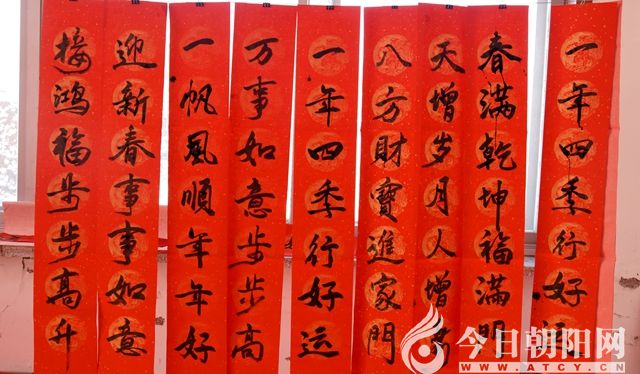 接鸿福步步高升
迎新春事事如意
一帆風順年年好
万事如意步步高
一年四季行好运
八方財寶進家門
天增岁月人增寿
春满乾坤福满門
一年四季行好
今日朝阳网
WWW.ATCY.CN